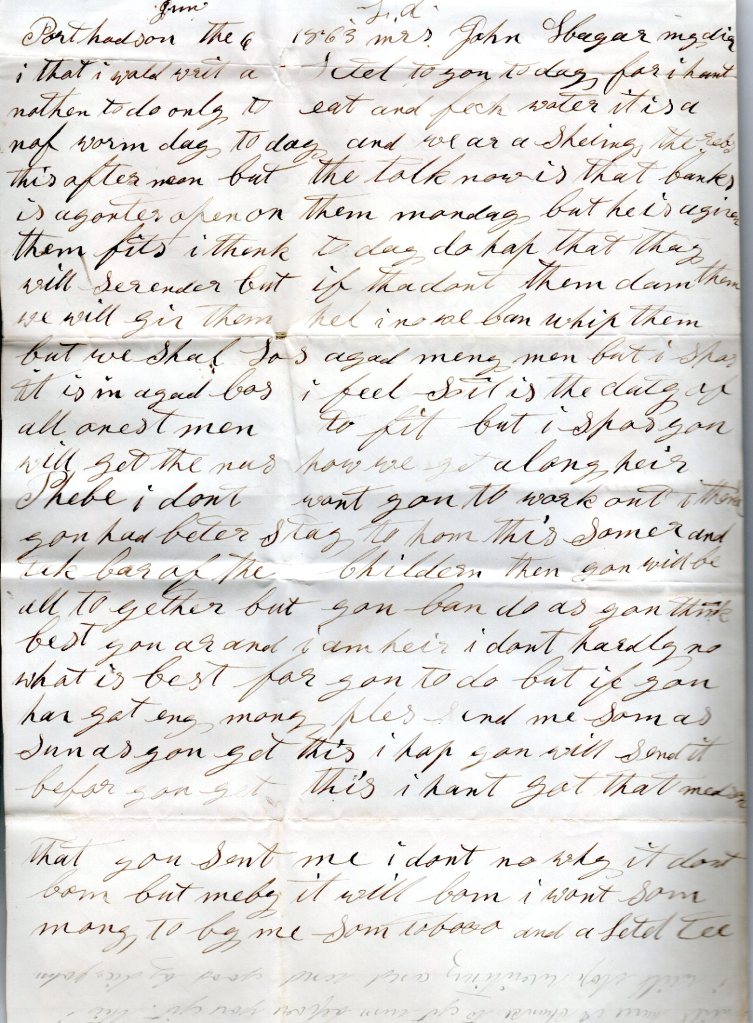 June L.d
Port hadson the 6 1863 mrs. John my dir
i that i wald writ a letel to you to day for i hant
nothen to do only to eat and fech water it is a
naf worm day to day and we ar a sheling the rebs
this after noon but the talk now is that banks
is a gonter open on them monday but he is a givn
them fits i thenk to day do hap that thay
will serender but if tha dont them dam them
we will giv them hel i no we can whip them
but we shal los a gad meny men but i spos
it is in a gad cos i feel so it is the duty of
all onest men to fit but i spos you
will get the nus how we get along heir
Phebe i dont wont you to work out i thenk
you had beter stay to hom this somer and
tek car of the childern then you will be
all to gether but you can do as you think
best you ar and i am heir i dont hardly no
what is best for you to do but if you
hav gat eny mony ples send me som as
sun as you get this i hap you will send it
befor you get this i hant got that medson
that you sent me i dont no why it dont
com but meby it will com i wont som
mony to by me som tobaco and a letel tee